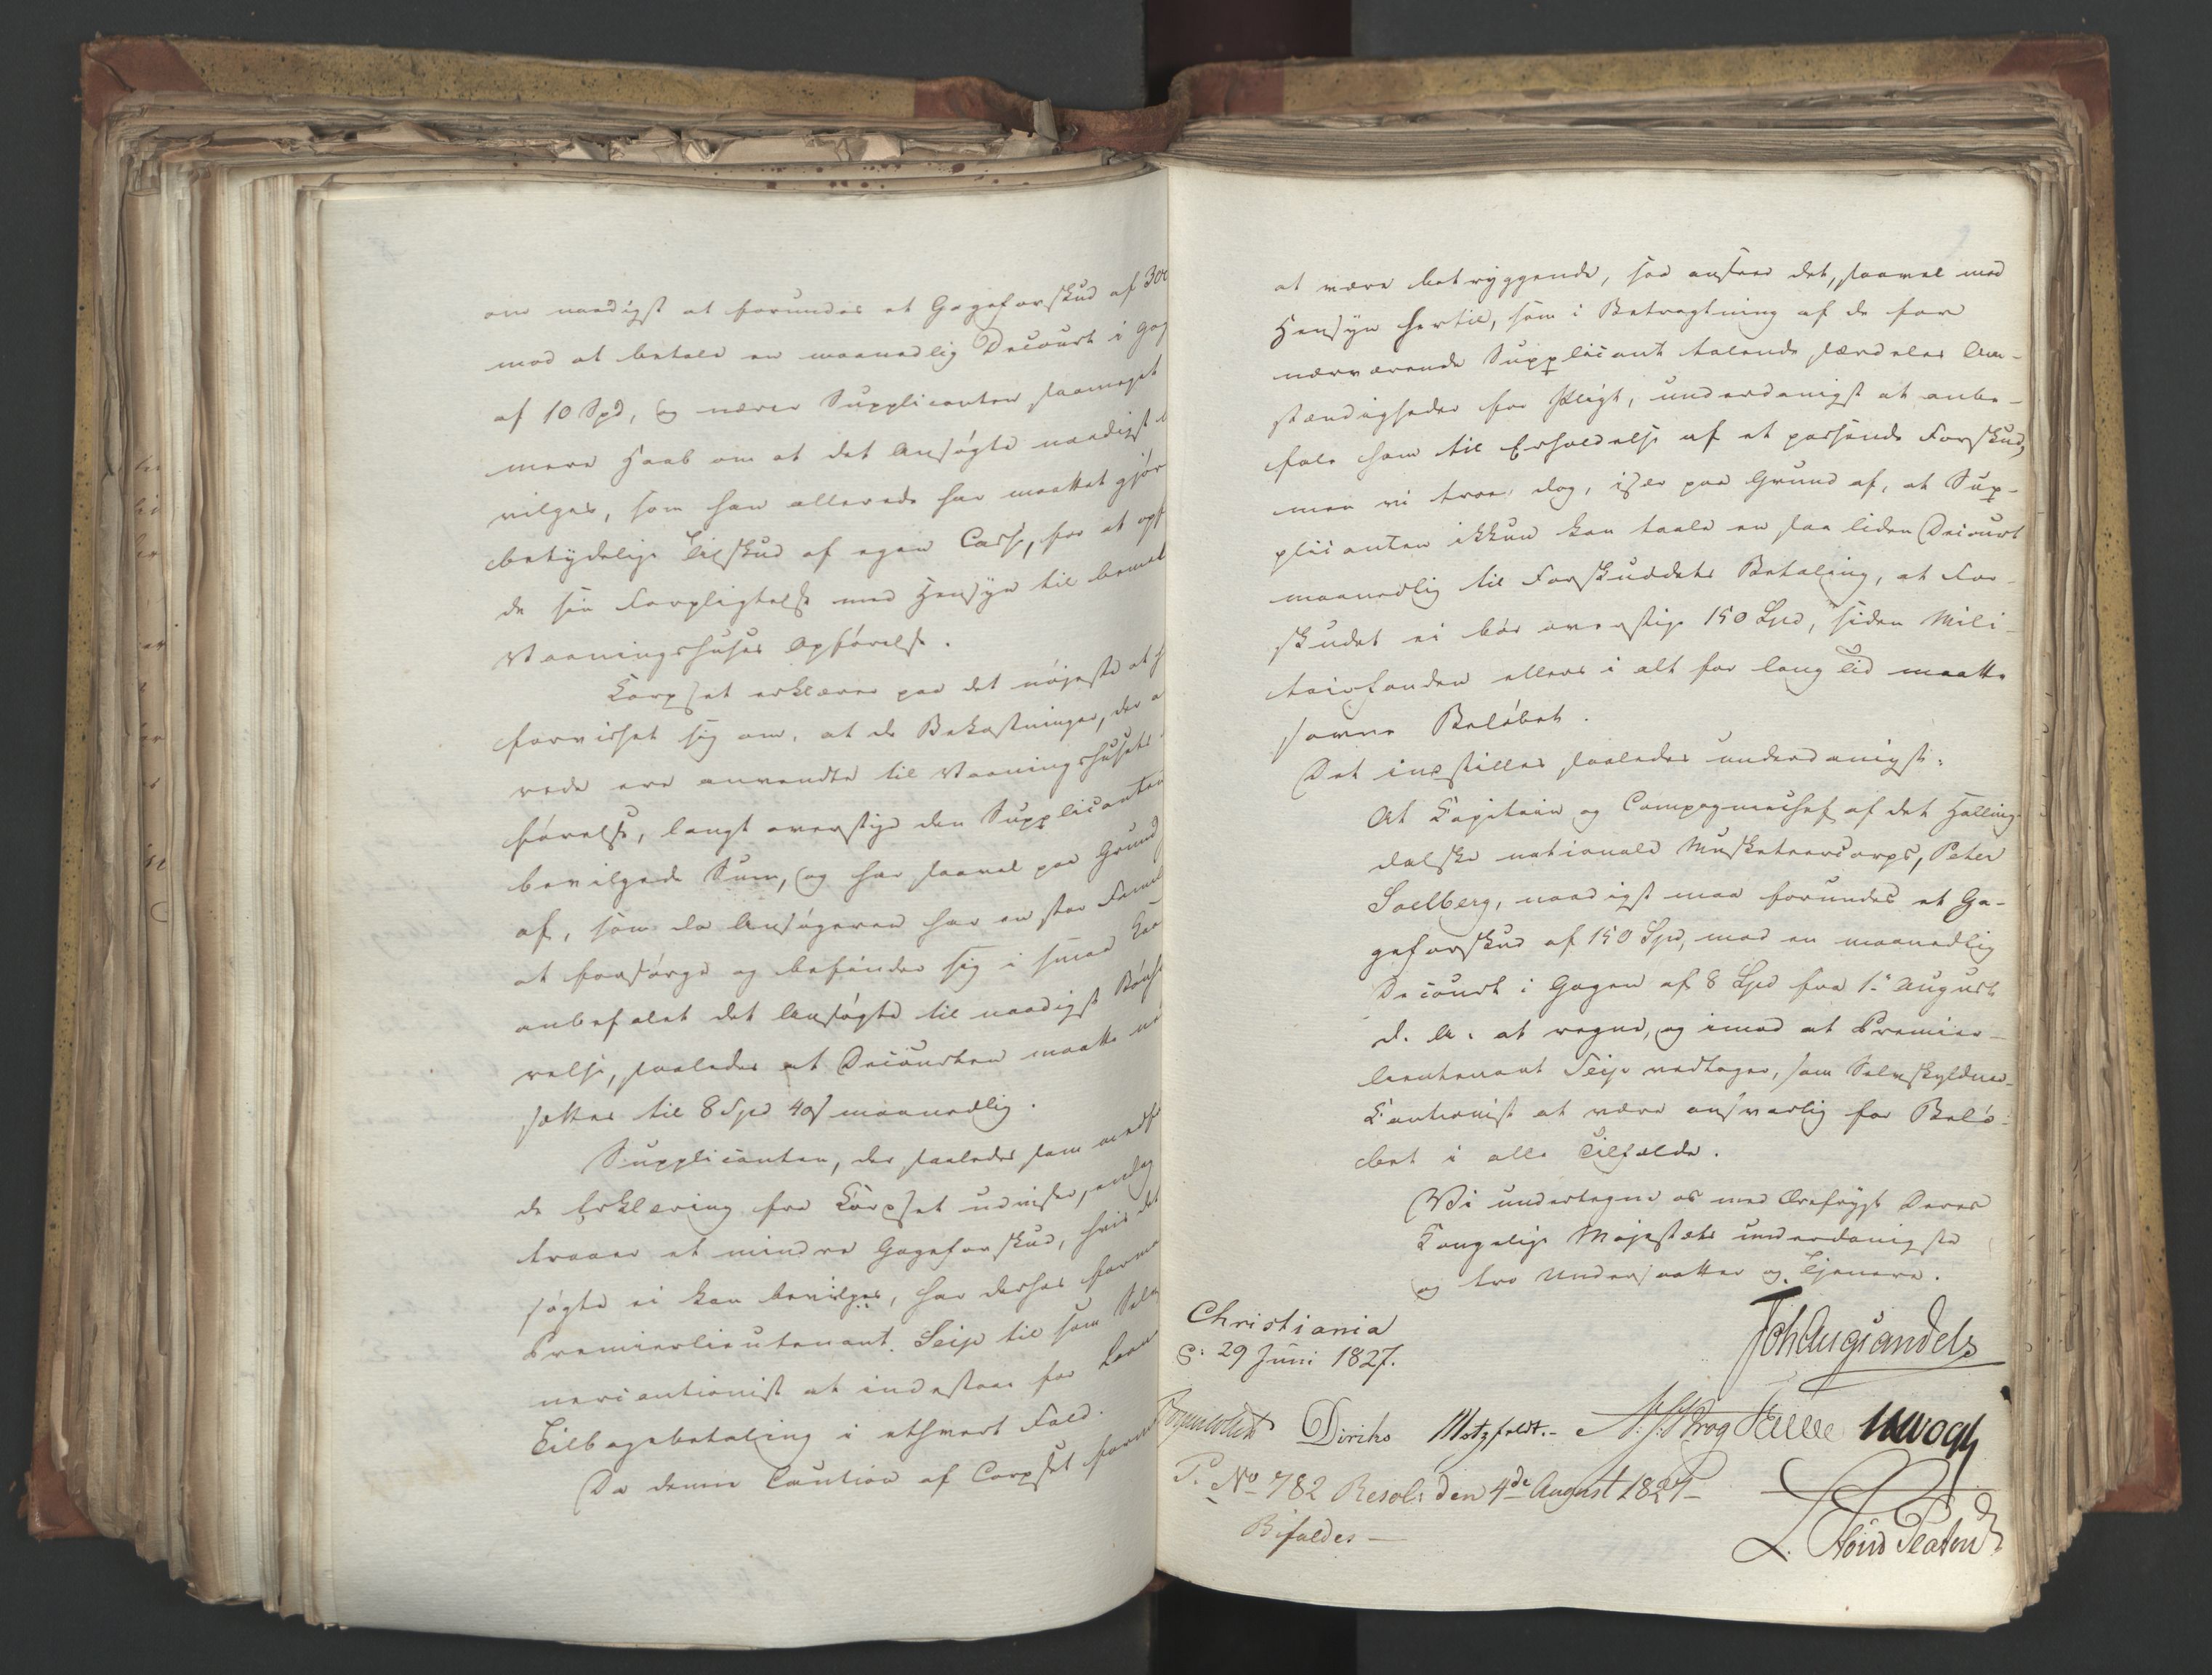 om naadigst at forundes et Gageforskud af 300
mod at betale en maanedlig Decourt i Gag
af 10 Spd, og nærer Supplicanten saameget
mere Haab om at det Ansøgte naadigst
vilges, som han allerede har maattet gjør
betydelige Tilskud af egen Casse, for at opf
de sin Forpligtelse med Hensyn til
Vaaningshuses Opførelse.
Corpset erklærer paa det nøjeste at h
forvisset sig om, at de Bekostninger, der a
rede ere anvendte til Vaaningshusets
førelse, langt overstige den Supplicanten
bevilgede Sum, og har saavel paa Grund
af, som da Ansøgeren har en stor Famil
at forsørge og befinder sig i smaa Kaa
anbefalet det Ansøgte til naadigst Bønhø
relse, saaledes at Decourten maatte ne
sættes til 8 Spd 40 s maanedlig.
Supplicanten, der saaledes som medfø
de Erklæring fra Corpset udviser, endog
attraaer et mindre Gageforskud, hvis det
søgte ei kan bevilges, har derhos forma
Premierlieutenant Seip til som Selv
nercautionist at indestaae for Laan
Tilbagebetaling i ethvert Fald.
Da denne Caution af Corpset forme
at være betryggende, saa ansees det, saavel med
Hensyn hertil, som i Betragtning af de for
nærværende Supplicant talende særdeles Om-
stændigheder for Pligt, underdanigst at anbe-
fale ham til Erholdelse af et passende Forskud,
men vi troe dog, især paa Grund af, at Sup-
plicanten ikkun kan taale en saa liden Decourt
maanedlig til Forskuddets Betaling, at For-
skudet ei bør overstige 150 Spd, siden Mili-
tairfonden ellers i alt for lang Tid maatte
savne Beløbet.
Det indstilles saaledes underdanigst:
At Capitain og Compagniechef af det Halling-
dalske nationale Musketeercorps, Peter
Soelberg, naadigst maa forundes et Ga-
geforskud af 150 Spd, mod en maanedlig
Decourt i Gagen af 8 Spd fra 1ste August
d. A. at regne, og imod at Premier-
lieutenant Seip vedtager, som Selvskyldner-
Cautionist at være ansvarlig for Belø-
bet i alle Tilfælde.
Vi undertegne os med Ærefrygt Deres
Kongelige Majestæts underdanigste
og tro Undersaatter og Tjenere.
Christiania
d: 29 Juni 1827.
Joh Aug Sandels
Diriks Motzfeldt. N. J. Krog
P. No 782 Resol: den 4de August 1827
Bifaldes